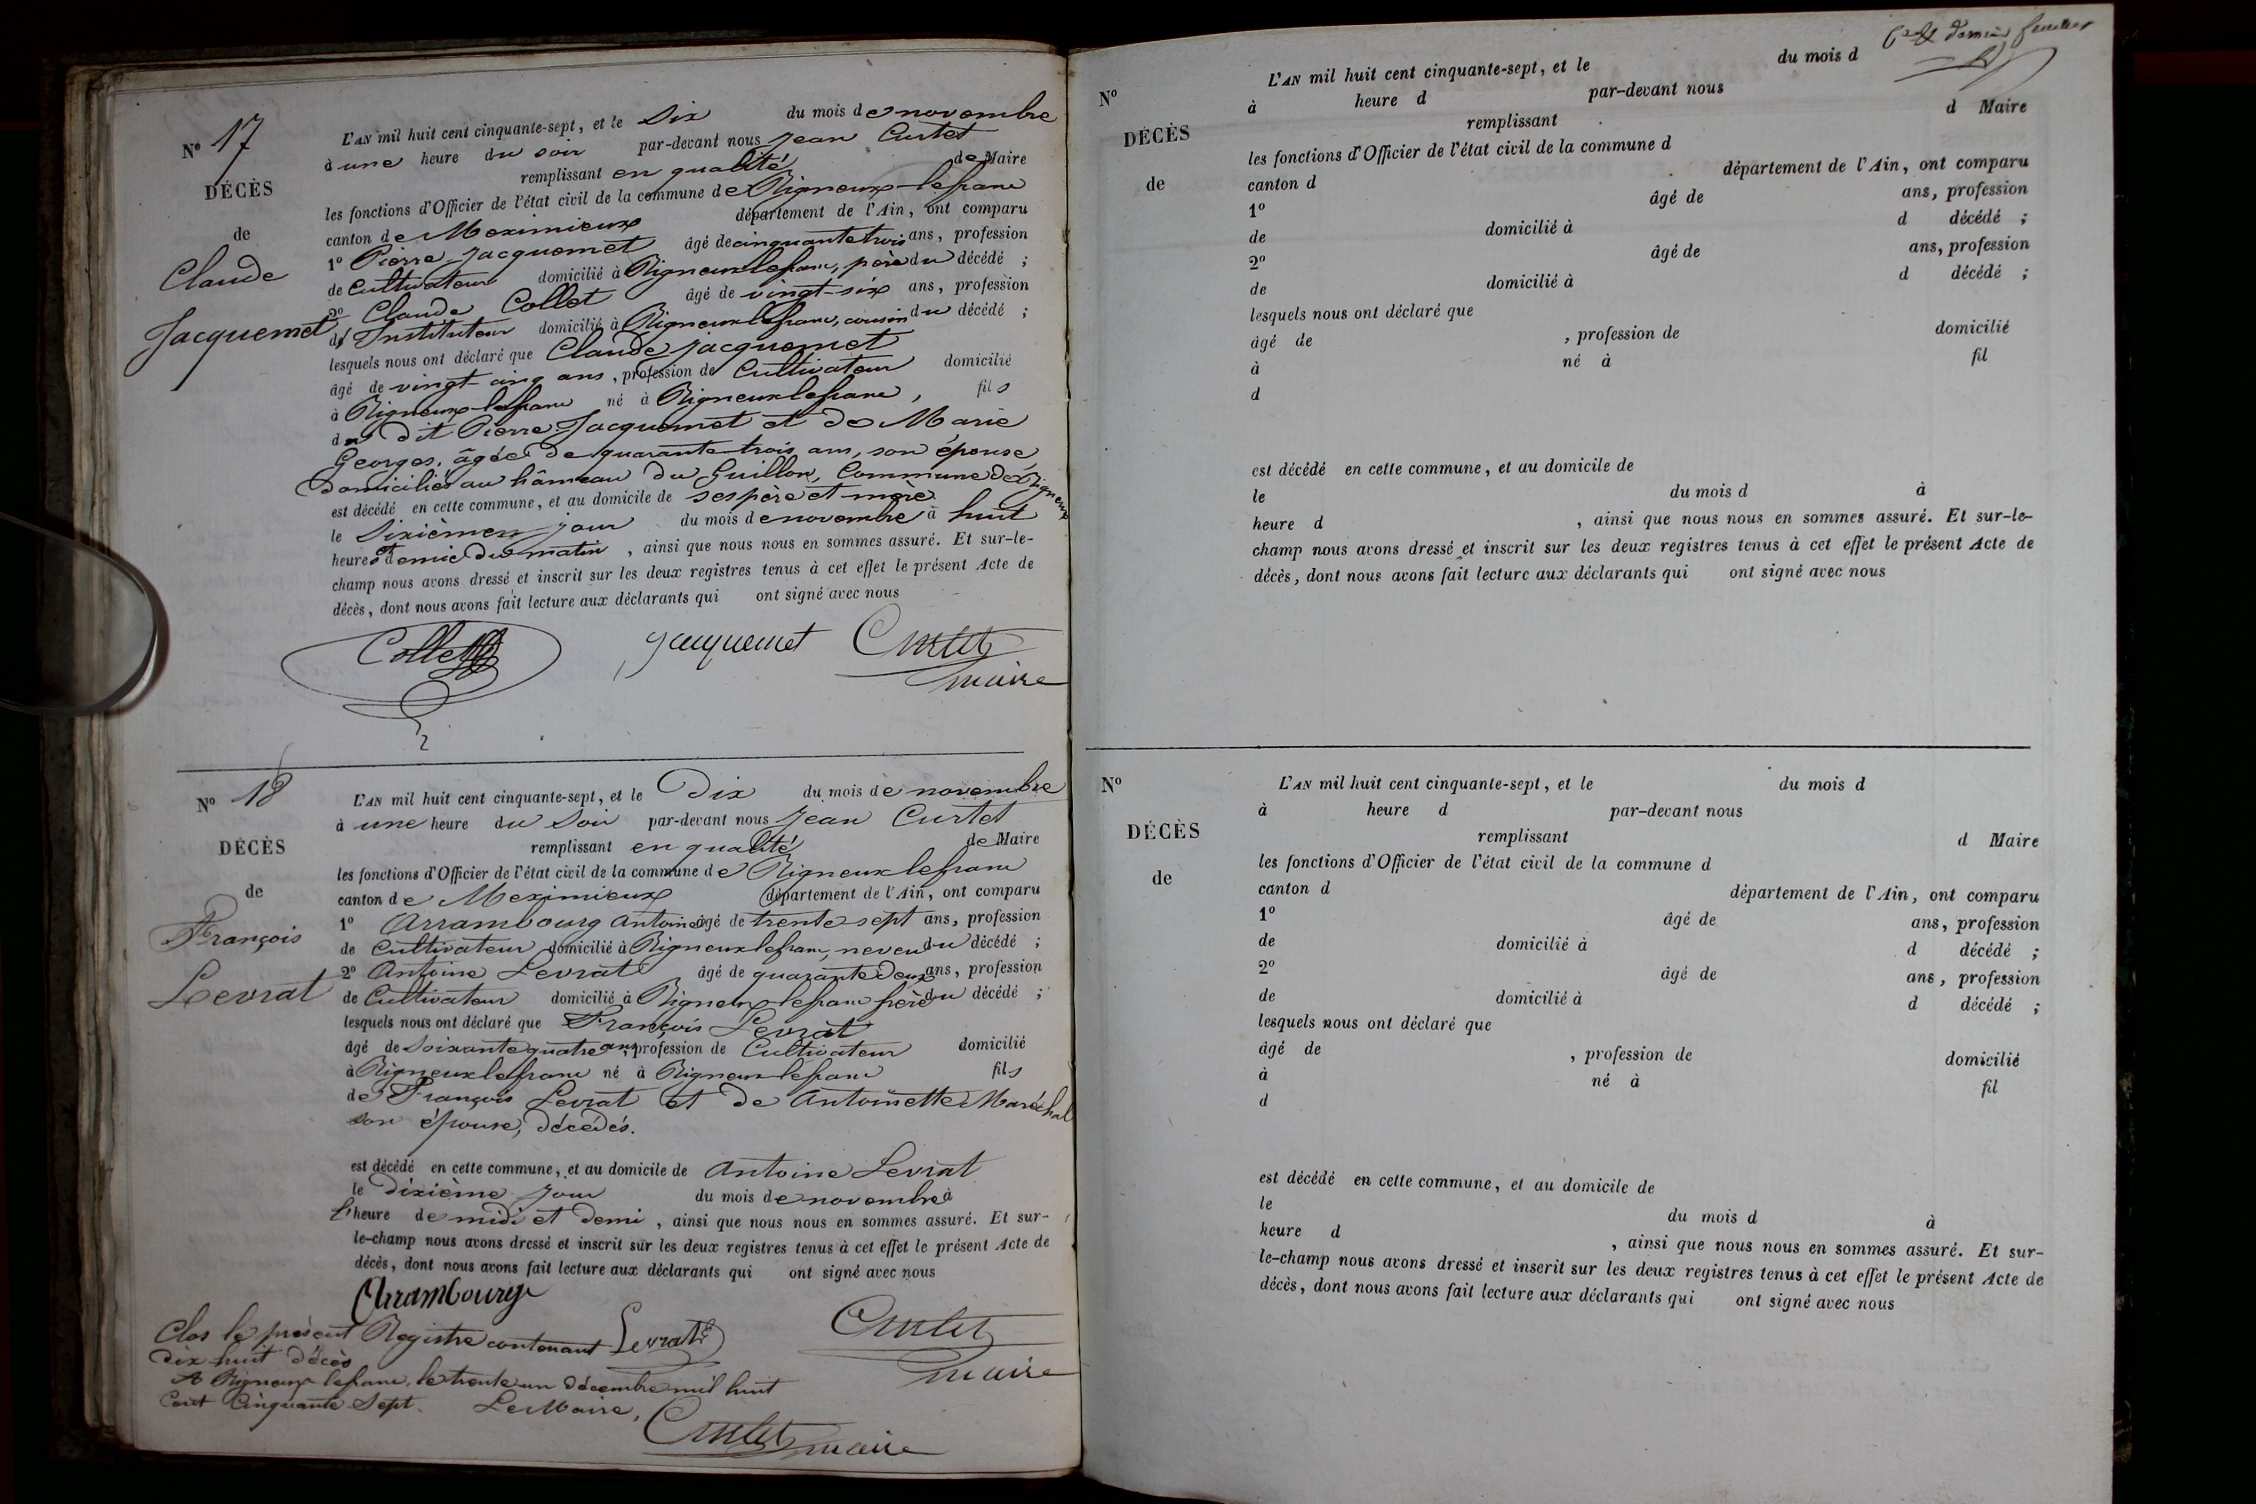 N° 17
DÉCÈS
de
Claude
Jacquemet
L'AN mil huit cent cinquante-sept, et le Six du mois de novembre
à une heure du soir par-devant nous Jean Curtet
remplissant en qualité de Maire
les fonctions d'Officier de l'état civil de la commune de Rigneux-lefranc
canton de Meximieux département de l'Ain, ont comparu
1° Pierre Jacquemet âgé de cinquante trois ans, profession
de Cultivateur domicilié à Rigneux lefranc, père du décédé ;
2° Claude Collet âgé de vingt-six ans, profession
d'Instituteur domicilié à Rigneux lefranc, cousin du décédé ;
lesquels nous ont déclaré que Claude Jacquemet
âgé de vingt cinq ans, profession de Cultivateur domicilié
à Rigneux-lefranc né à Rigneux lefranc, fils
du dit Pierre Jacquemet et de Marie
Georges, âgée de quarante-trois ans, son épouse
domiciliés au hâmeau du Guillon, Commune de Rigneux
est décédé en cette commune, et au domicile de ses père et mère
le Sixième jour du mois de novembre à huit
heures et demie du matin, ainsi que nous nous en sommes assuré. Et sur-le-
champ nous avons dressé et inscrit sur les deux registres tenus à cet effet le présent Acte de
décès, dont nous avons fait lecture aux déclarants qui ont signé avec nous
Collet Jacquemet Curtet
maire
N° 18
DÉCÈS
de
François
Levrat
L'AN mil huit cent cinquante-sept, et le Dix du mois de novembre
à une heure du Soir par-devant nous Jean Curtet
remplissant en qualité de Maire
les fonctions d'Officier de l'état civil de la commune de Rigneux lefranc
canton de Meximieux département de l'Ain, ont comparu
1° Arrambourg Antoine âgé de trente sept ans, profession
de Cultivateur domicilié à Rigneux lefranc, neveu du décédé ;
2° Antoine Levrat âgé de quarante deux ans, profession
de Cultivateur domicilié à Rigneux lefranc frère du décédé ;
lesquels nous ont déclaré que François Levrat
âgé de Soixante quatre ans, profession de Cultivateur domicilié
à Rigneux lefranc né à Rigneux lefranc fils
de François Levrat et de Antoinette Maréchal
son épouse, décédés.
est décédé en cette commune, et au domicile de Antoine Levrat
le dixième jour du mois de novembre à
l'heure de midi et demi, ainsi que nous nous en sommes assuré. Et sur-
le-champ nous avons dressé et inscrit sur les deux registres tenus à cet effet le présent Acte de
décès, dont nous avons fait lecture aux déclarants qui ont signé avec nous
Arrambourg
Levrat
Curtet
maire
Clos le présent Registre contenant
dix huit décès
A Rigneux lefranc, le trente un décembre mil huit
Cent Cinquante Sept. Le Maire,
Curtet maire
dernier feuillet
N°
DÉCÈS
de
L'AN mil huit cent cinquante-sept, et le du mois d
à heure d par-devant nous
remplissant d Maire
les fonctions d'Officier de l'état civil de la commune d
canton d département de l'Ain, ont comparu
1° âgé de ans, profession
de domicilié à d décédé ;
2° âgé de ans, profession
de domicilié à d décédé ;
lesquels nous ont déclaré que
âgé de , profession de domicilié
à né à fil
d
est décédé en cette commune, et au domicile de
le du mois d à
heure d , ainsi que nous nous en sommes assuré. Et sur-le-
champ nous avons dressé et inscrit sur les deux registres tenus à cet effet le présent Acte de
décès, dont nous avons fait lecture aux déclarants qui ont signé avec nous
N°
DÉCÈS
de
L'AN mil huit cent cinquante-sept, et le du mois d
à heure d par-devant nous
remplissant d Maire
les fonctions d'Officier de l'état civil de la commune d
canton d département de l'Ain, ont comparu
1° âgé de ans, profession
de domicilié à d décédé ;
2° âgé de ans, profession
de domicilié à d décédé ;
lesquels nous ont déclaré que
âgé de , profession de domicilié
à né à fil
d
est décédé en cette commune, et au domicile de
le du mois d à
heure d , ainsi que nous nous en sommes assuré. Et sur-
le-champ nous avons dressé et inscrit sur les deux registres tenus à cet effet le présent Acte de
décès, dont nous avons fait lecture aux déclarants qui ont signé avec nous